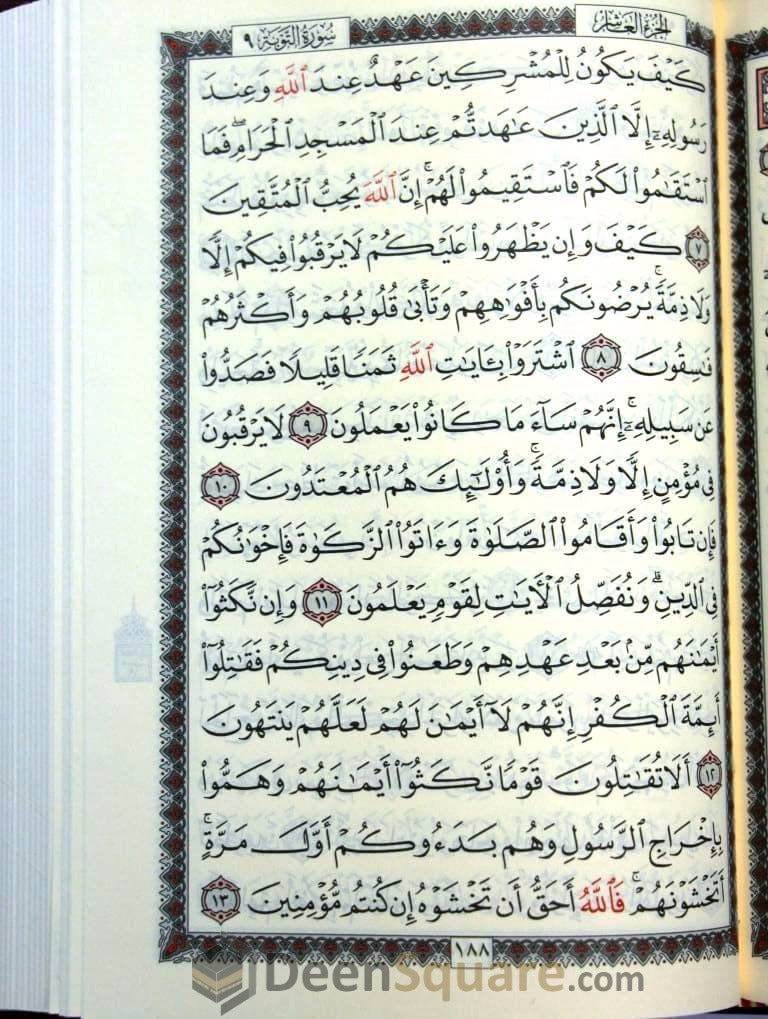 الجزء العاشر
سورة التوبة ٩
كَيْفَ يَكُونُ لِلْمُشْرِكِينَ عَهْدٌ عِندَ ٱللَّهِ وَعِندَ
رَسُولِهِۦٓ إِلَّا ٱلَّذِينَ عَٰهَدتُّمْ عِندَ ٱلْمَسْجِدِ ٱلْحَرَامِ ۖ فَمَا
ٱسْتَقَٰمُوا۟ لَكُمْ فَٱسْتَقِيمُوا۟ لَهُمْ ۚ إِنَّ ٱللَّهَ يُحِبُّ ٱلْمُتَّقِينَ
٧ كَيْفَ وَإِن يَظْهَرُوا۟ عَلَيْكُمْ لَا يَرْقُبُوا۟ فِيكُمْ إِلًّا
وَلَا ذِمَّةً ۚ يُرْضُونَكُم بِأَفْوَٰهِهِمْ وَتَأْبَىٰ قُلُوبُهُمْ وَأَكْثَرُهُمْ
فَٰسِقُونَ ٨ ٱشْتَرَوْا۟ بِـَٔايَٰتِ ٱللَّهِ ثَمَنًا قَلِيلًا فَصَدُّوا۟
عَن سَبِيلِهِۦٓ ۚ إِنَّهُمْ سَآءَ مَا كَانُوا۟ يَعْمَلُونَ ٩ لَا يَرْقُبُونَ
فِى مُؤْمِنٍ إِلًّا وَلَا ذِمَّةً ۚ وَأُو۟لَٰٓئِكَ هُمُ ٱلْمُعْتَدُونَ ١٠
فَإِن تَابُوا۟ وَأَقَامُوا۟ ٱلصَّلَوٰةَ وَءَاتَوُا۟ ٱلزَّكَوٰةَ فَإِخْوَٰنُكُمْ
فِى ٱلدِّينِ ۗ وَنُفَصِّلُ ٱلْـَٔايَٰتِ لِقَوْمٍ يَعْلَمُونَ ١١ وَإِن نَّكَثُوٓا۟
أَيْمَٰنَهُم مِّنۢ بَعْدِ عَهْدِهِمْ وَطَعَنُوا۟ فِى دِينِكُمْ فَقَٰتِلُوٓا۟
أَئِمَّةَ ٱلْكُفْرِ ۙ إِنَّهُمْ لَآ أَيْمَٰنَ لَهُمْ لَعَلَّهُمْ يَنتَهُونَ
١٢ أَلَا تُقَٰتِلُونَ قَوْمًا نَّكَثُوٓا۟ أَيْمَٰنَهُمْ وَهَمُّوا۟
بِإِخْرَاجِ ٱلرَّسُولِ وَهُم بَدَءُوكُمْ أَوَّلَ مَرَّةٍ ۚ
أَتَخْشَوْنَهُمْ ۚ فَٱللَّهُ أَحَقُّ أَن تَخْشَوْهُ إِن كُنتُم مُّؤْمِنِينَ ١٣
١٨٨
DeenSquare.com